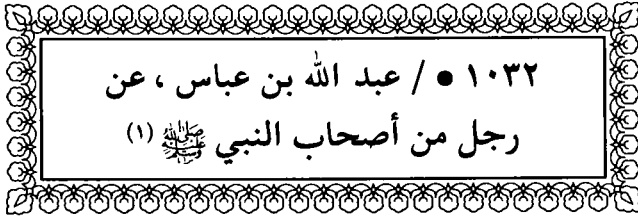 ١٠٣٢ ● / عبد الله بن عباس ، عن
رجل من أصحاب النبي ﷺ (١)